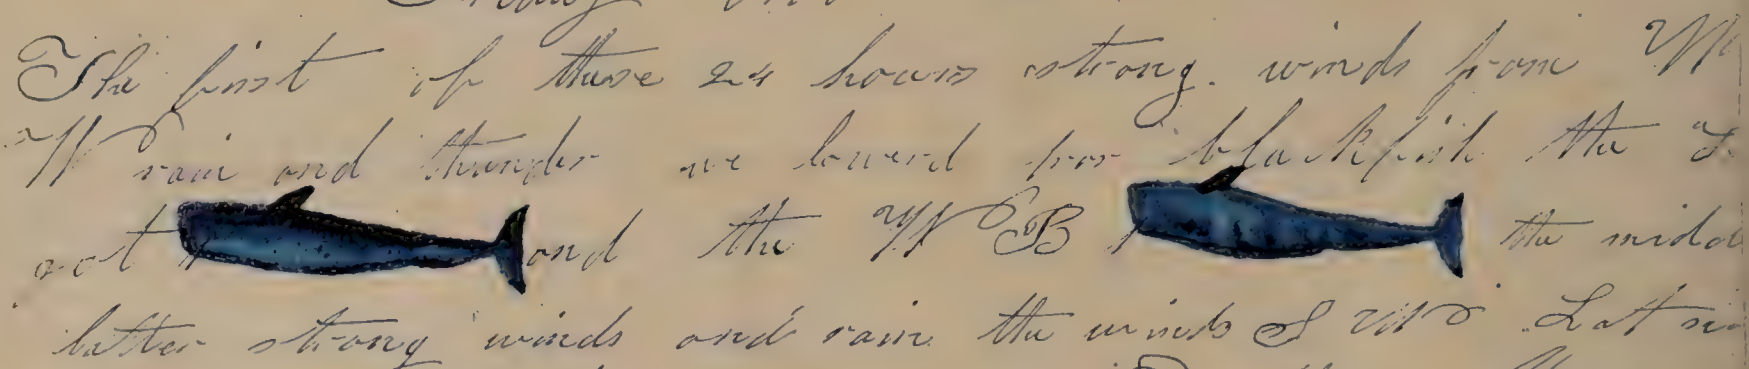 The first of these 24 hours strong winds from
W rain and thunder we lowerd for blackfish the
got and the W B the middl
latter strong winds and rain the winds S W Lat